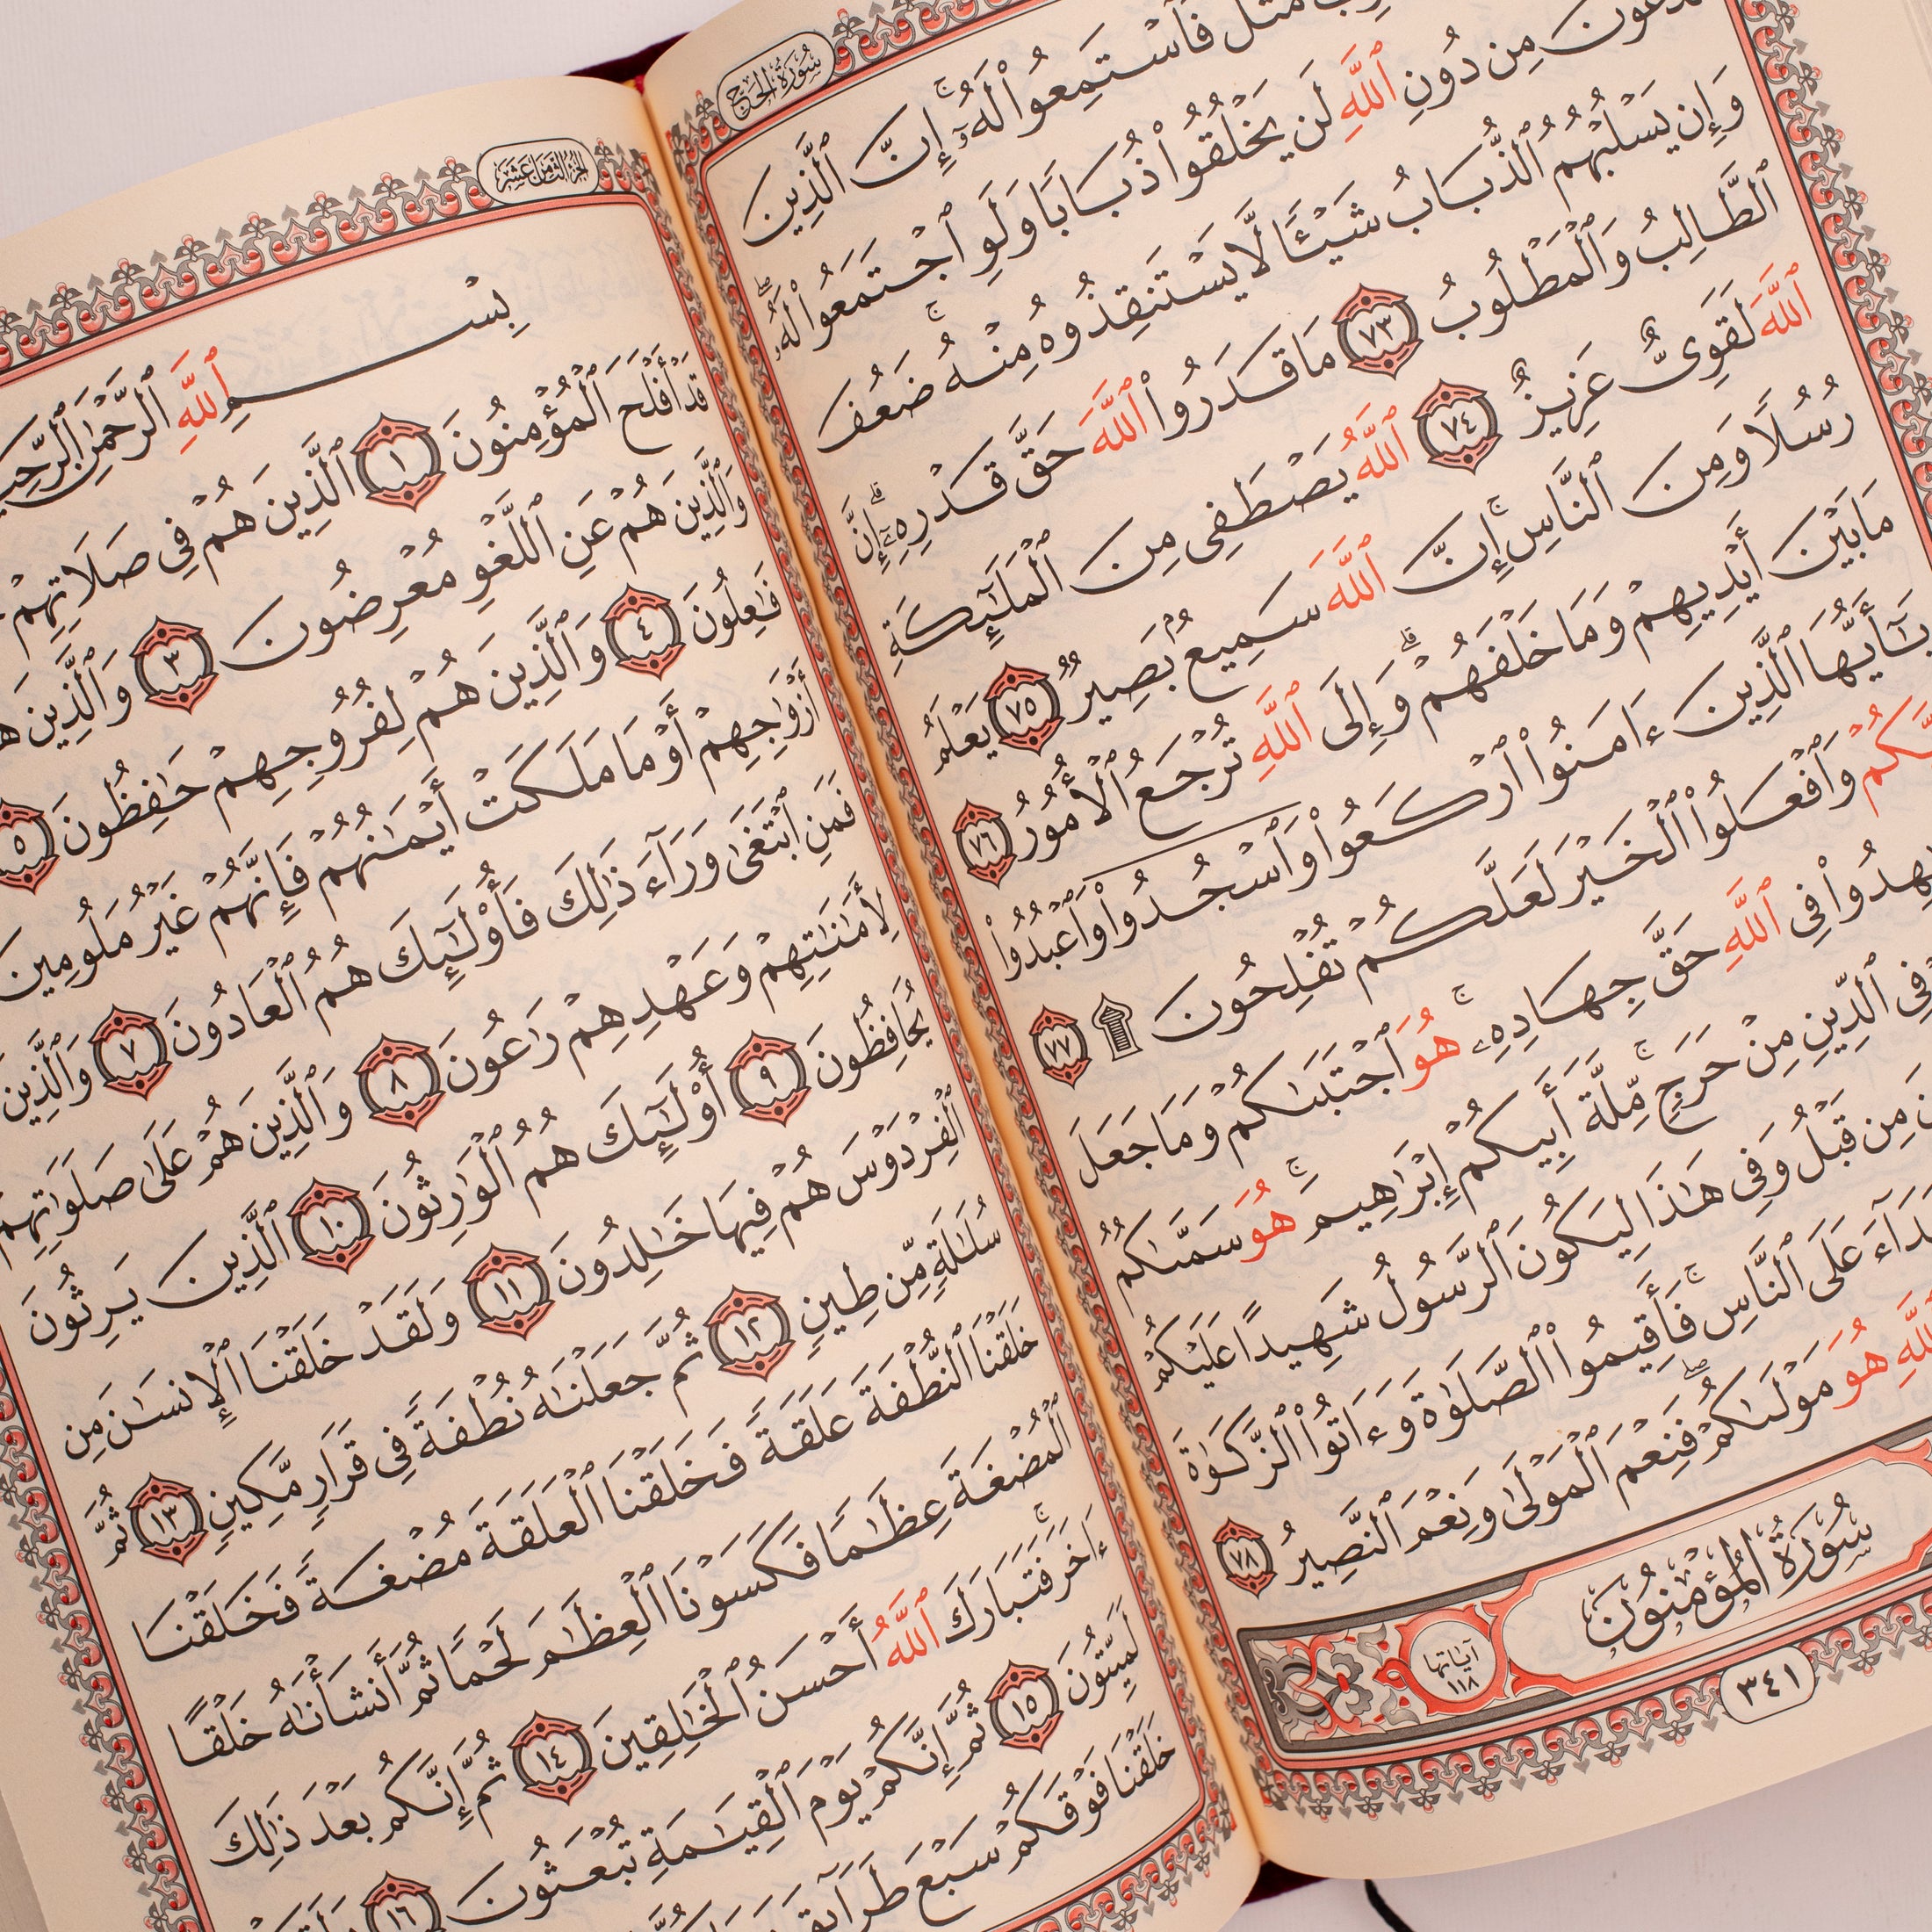 سُورَةُ الحَجّ
مَثَلٌ فَٱسْتَمِعُوا۟ لَهُۥٓ ۚ إِنَّ ٱلَّذِينَ
تَدْعُونَ مِن دُونِ ٱللَّهِ لَن يَخْلُقُوا۟ ذُبَابًا وَلَوِ ٱجْتَمَعُوا۟ لَهُۥ ۖ
وَإِن يَسْلُبْهُمُ ٱلذُّبَابُ شَيْـًٔا لَّا يَسْتَنقِذُوهُ مِنْهُ ۚ ضَعُفَ
ٱلطَّالِبُ وَٱلْمَطْلُوبُ ٧٣ مَا قَدَرُوا۟ ٱللَّهَ حَقَّ قَدْرِهِۦٓ ۗ إِنَّ
ٱللَّهَ لَقَوِىٌّ عَزِيزٌ ٧٤ ٱللَّهُ يَصْطَفِى مِنَ ٱلْمَلَـٰٓئِكَةِ
رُسُلًا وَمِنَ ٱلنَّاسِ ۚ إِنَّ ٱللَّهَ سَمِيعٌۢ بَصِيرٌ ٧٥ يَعْلَمُ
مَا بَيْنَ أَيْدِيهِمْ وَمَا خَلْفَهُمْ ۗ وَإِلَى ٱللَّهِ تُرْجَعُ ٱلْأُمُورُ ٧٦
يَـٰٓأَيُّهَا ٱلَّذِينَ ءَامَنُوا۟ ٱرْكَعُوا۟ وَٱسْجُدُوا۟ وَٱعْبُدُوا۟
رَبَّكُمْ وَٱفْعَلُوا۟ ٱلْخَيْرَ لَعَلَّكُمْ تُفْلِحُونَ ۩ ٧٧
وَجَـٰهِدُوا۟ فِى ٱللَّهِ حَقَّ جِهَادِهِۦ ۚ هُوَ ٱجْتَبَىٰكُمْ وَمَا جَعَلَ
فِى ٱلدِّينِ مِنْ حَرَجٍ ۚ مِّلَّةَ أَبِيكُمْ إِبْرَٰهِيمَ ۚ هُوَ سَمَّىٰكُمُ
مِن قَبْلُ وَفِى هَـٰذَا لِيَكُونَ ٱلرَّسُولُ شَهِيدًا عَلَيْكُمْ
شُهَدَآءَ عَلَى ٱلنَّاسِ ۚ فَأَقِيمُوا۟ ٱلصَّلَوٰةَ وَءَاتُوا۟ ٱلزَّكَوٰةَ
بِٱللَّهِ هُوَ مَوْلَىٰكُمْ ۖ فَنِعْمَ ٱلْمَوْلَىٰ وَنِعْمَ ٱلنَّصِيرُ ٧٨
سُورَةُ المُؤْمِنُونَ
آياتها
١١٨
٣٤١
الجزء الثامن عشر
بِسْمِ ٱللَّهِ ٱلرَّحْمَـٰنِ ٱلرَّحِيمِ
قَدْ أَفْلَحَ ٱلْمُؤْمِنُونَ ١ ٱلَّذِينَ هُمْ فِى صَلَاتِهِمْ
وَٱلَّذِينَ هُمْ عَنِ ٱللَّغْوِ مُعْرِضُونَ ٣ وَٱلَّذِينَ
فَـٰعِلُونَ ٤ وَٱلَّذِينَ هُمْ لِفُرُوجِهِمْ حَـٰفِظُونَ ٥
أَزْوَٰجِهِمْ أَوْ مَا مَلَكَتْ أَيْمَـٰنُهُمْ فَإِنَّهُمْ غَيْرُ مَلُومِينَ
فَمَنِ ٱبْتَغَىٰ وَرَآءَ ذَٰلِكَ فَأُو۟لَـٰٓئِكَ هُمُ ٱلْعَادُونَ ٧ وَٱلَّذِينَ
لِأَمَـٰنَـٰتِهِمْ وَعَهْدِهِمْ رَٰعُونَ ٨ وَٱلَّذِينَ هُمْ عَلَىٰ صَلَوَٰتِهِمْ
يُحَافِظُونَ ٩ أُو۟لَـٰٓئِكَ هُمُ ٱلْوَٰرِثُونَ ١٠ ٱلَّذِينَ يَرِثُونَ
ٱلْفِرْدَوْسَ هُمْ فِيهَا خَـٰلِدُونَ ١١ وَلَقَدْ خَلَقْنَا ٱلْإِنسَـٰنَ مِن
سُلَـٰلَةٍ مِّن طِينٍ ١٢ ثُمَّ جَعَلْنَـٰهُ نُطْفَةً فِى قَرَارٍ مَّكِينٍ ١٣ ثُمَّ
خَلَقْنَا ٱلنُّطْفَةَ عَلَقَةً فَخَلَقْنَا ٱلْعَلَقَةَ مُضْغَةً فَخَلَقْنَا
ٱلْمُضْغَةَ عِظَـٰمًا فَكَسَوْنَا ٱلْعِظَـٰمَ لَحْمًا ثُمَّ أَنشَأْنَـٰهُ خَلْقًا
ءَاخَرَ ۚ فَتَبَارَكَ ٱللَّهُ أَحْسَنُ ٱلْخَـٰلِقِينَ ١٤ ثُمَّ إِنَّكُم بَعْدَ ذَٰلِكَ
لَمَيِّتُونَ ١٥ ثُمَّ إِنَّكُمْ يَوْمَ ٱلْقِيَـٰمَةِ تُبْعَثُونَ ١٦
خَلَقْنَا فَوْقَكُمْ سَبْعَ طَرَآئِقَ